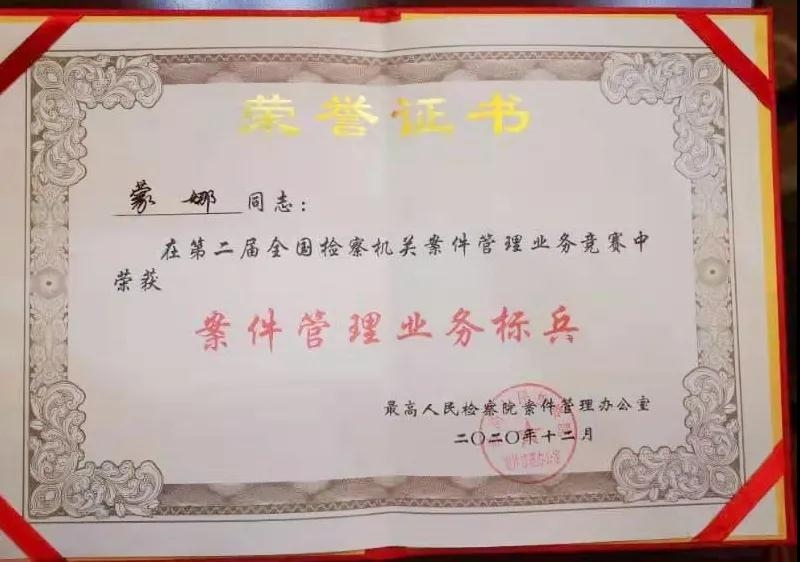 荣誉证书
蒙娜 同志：
在第二届全国检察机关案件管理业务竞赛中
荣获
案件管理业务标兵
最高人民检察院案件管理办公室
二〇二〇年十二月
案件管理办公室